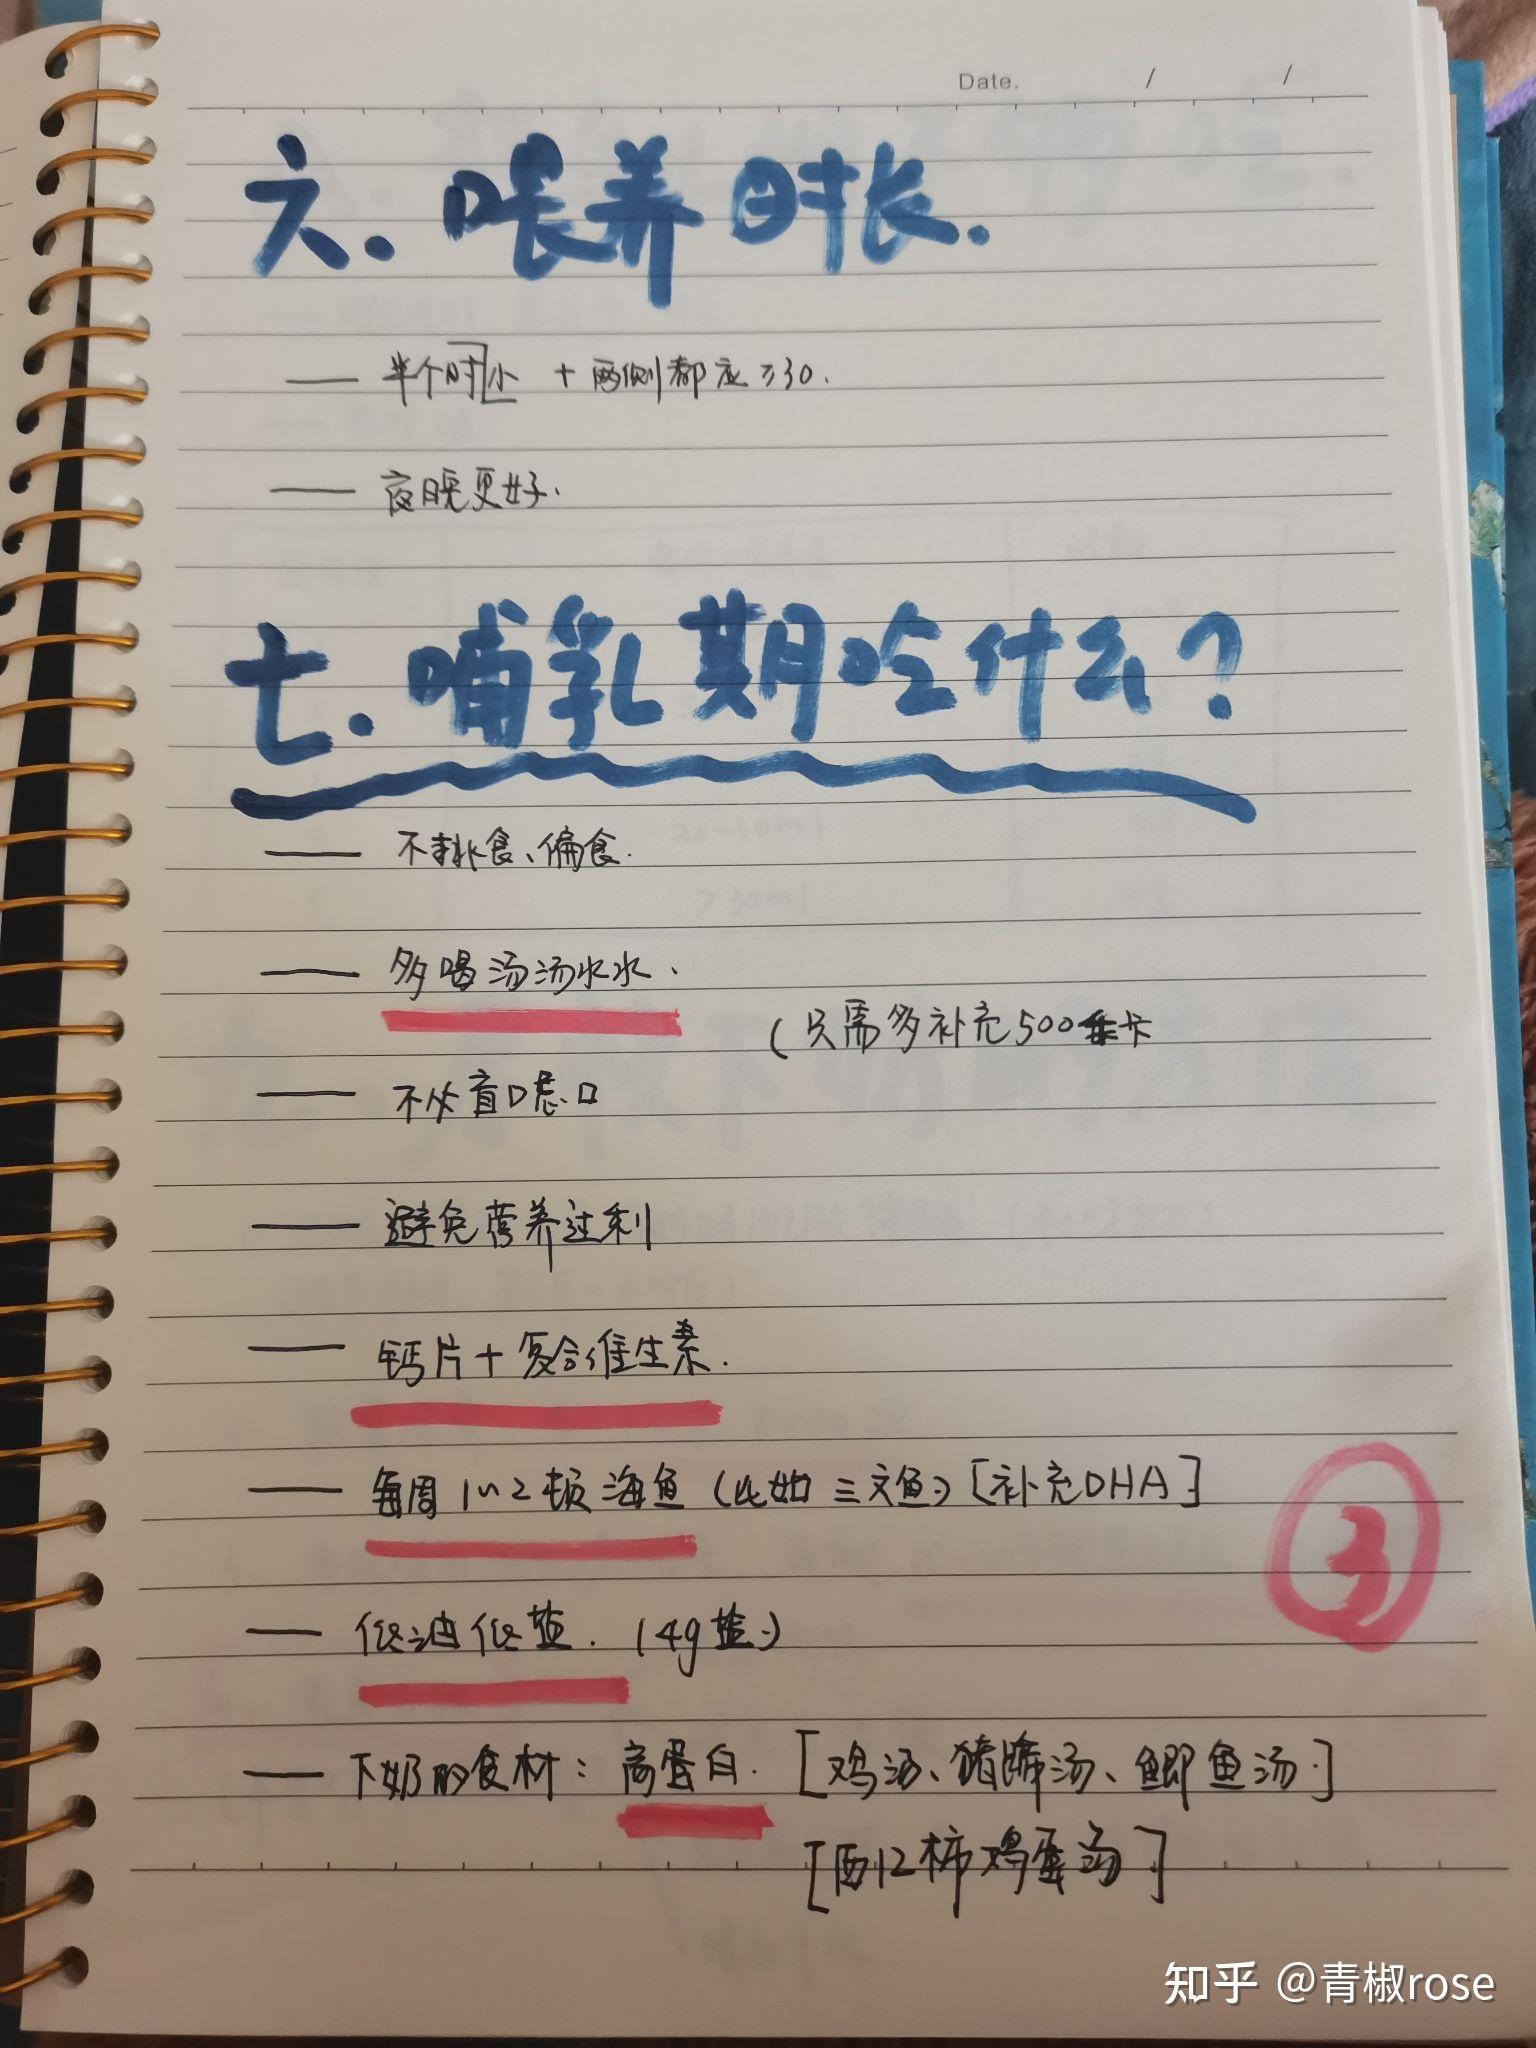 Date. / /
六. 喂养时长.
— 半个时小 + 两侧都应≥30.
— 夜晚更好.
七. 哺乳期吃什么?
— 不挑食、偏食.
— 多喝汤汤水水.
(只需多补充500卡
— 不必盲目忌口
— 避免营养过剩
— 钙片+复合维生素.
— 每周1~2顿海鱼(比如三文鱼)[补充DHA]
— 低油低盐. (4g盐)
3
— 下奶的食材: 高蛋白. [鸡汤、猪蹄汤、鲫鱼汤.]
[西红柿鸡蛋汤]
知乎 @青椒rose